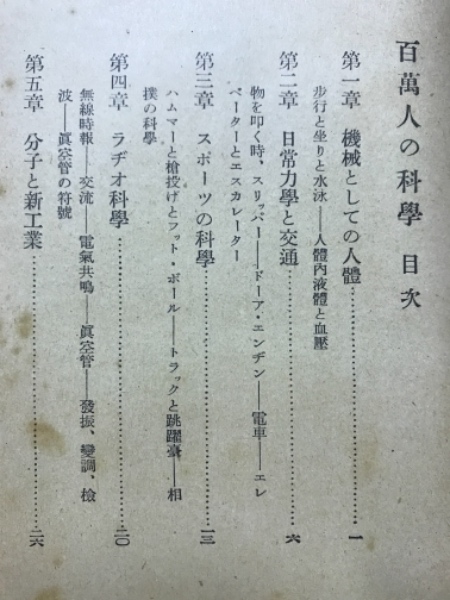 百萬人の科學 目次
第一章 機械としての人體……………………一
步行と坐りと水泳——人體內液體と血壓
第二章 日常力學と交通……………………六
物を叩く時・スリッパー——ドーア・エンヂン——電車——エレ
ベーターとエスカレーター
第三章 スポーツの科學……………………一三
ハムマーと槍投げとフット・ボール——トラックと跳躍臺——相
撲の科學
第四章 ラヂオ科學……………………二〇
無線時報——交流——電氣共鳴——眞空管——發振、變調、檢
波——眞空管の符號
第五章 分子と新工業……………………二六